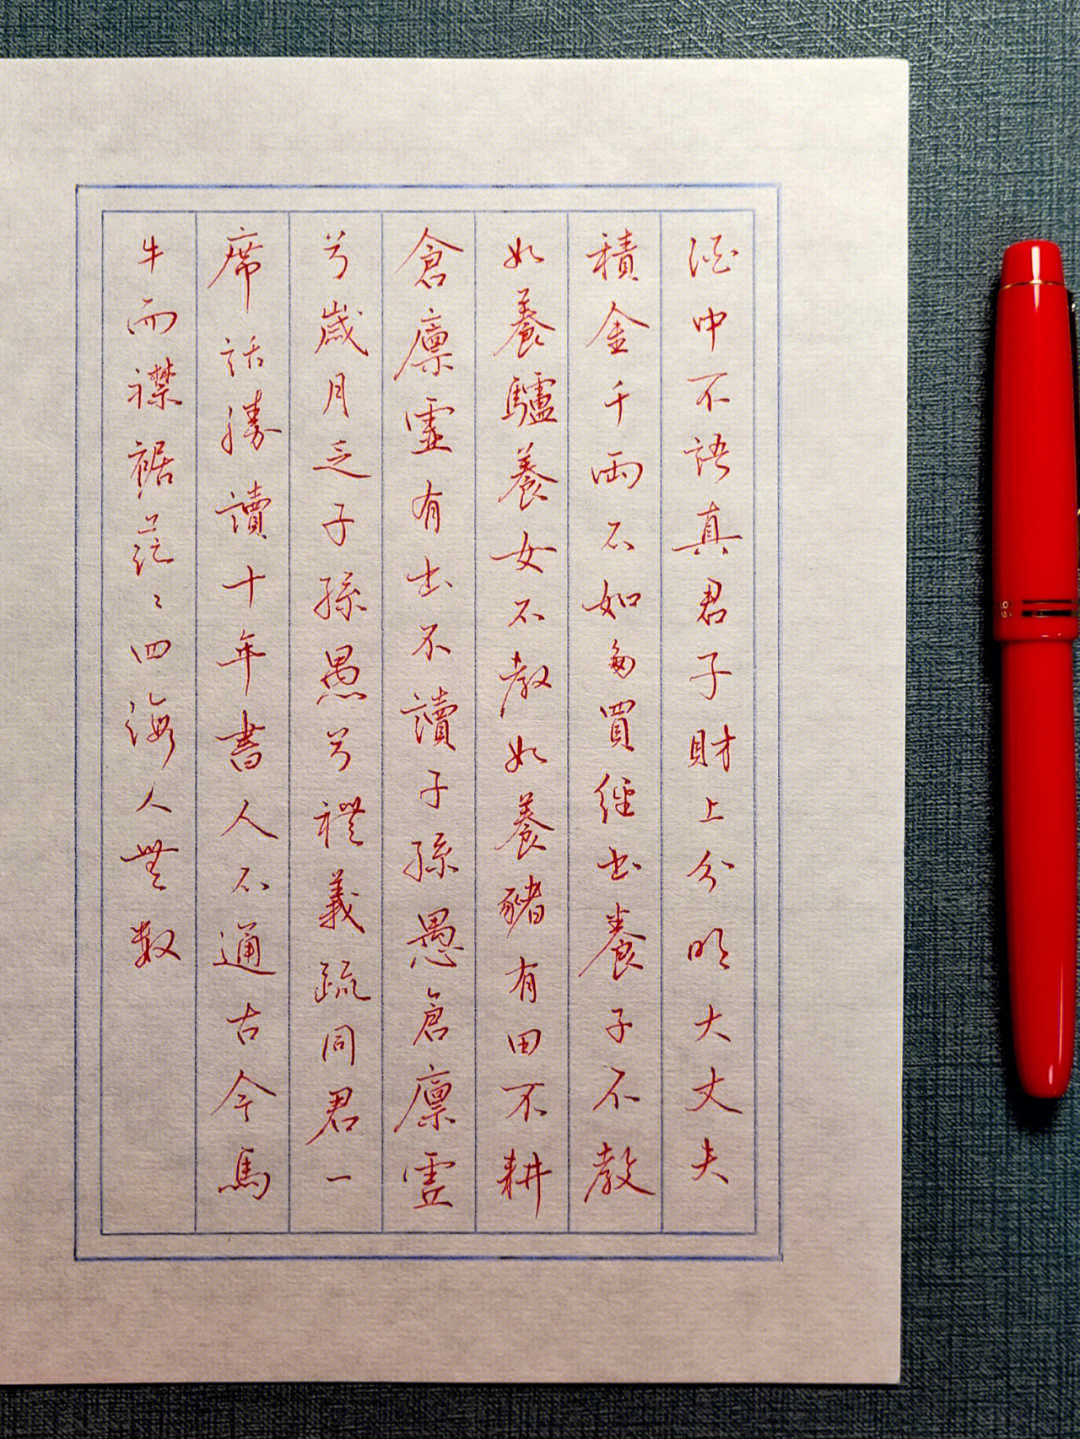 酒中不語真君子財上分明大丈夫
積金千兩不如多買經書養子不教
如養驢養女不教如養豬有田不耕
倉廩虛有書不讀子孫愚倉廩虛
兮歲月乏子孫愚兮禮義疏同君一
席話勝讀十年書人不通古今馬
牛而襟裾茫〻四海人無數